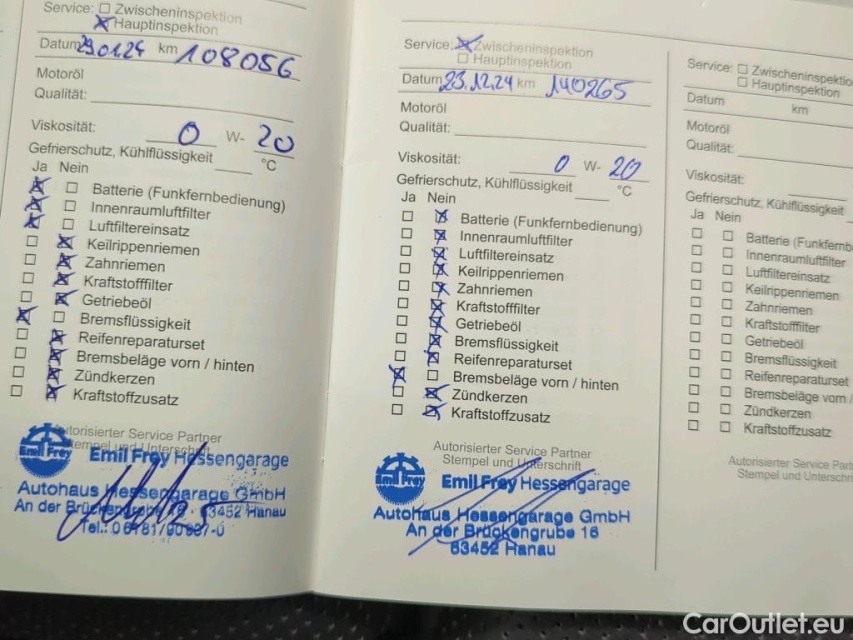 Service: Zwischeninspektion
Hauptinspektion
Datum 29.01.24 km 108056
Motoröl
Qualität:
Viskosität: 0 W- 20
Gefrierschutz, Kühlflüssigkeit °C
Ja Nein
Batterie (Funkfernbedienung)
Innenraumluftfilter
Luftfiltereinsatz
Keilrippenriemen
Zahnriemen
Kraftstofffilter
Getriebeöl
Bremsflüssigkeit
Reifenreparaturset
Bremsbeläge vorn / hinten
Zündkerzen
Kraftstoffzusatz
Autorisierter Service Partner
Stempel und Unterschrift
Emil Frey
Emil Frey Hessengarage
Autohaus Hessengarage GmbH
An der Brückengrube 16 · 63452 Hanau
Service: Zwischeninspektion
Hauptinspektion
Datum 23.12.24 km 140265
Motoröl
Qualität:
Viskosität: 0 W- 20
Gefrierschutz, Kühlflüssigkeit °C
Ja Nein
Batterie (Funkfernbedienung)
Innenraumluftfilter
Luftfiltereinsatz
Keilrippenriemen
Zahnriemen
Kraftstofffilter
Getriebeöl
Bremsflüssigkeit
Reifenreparaturset
Bremsbeläge vorn / hinten
Zündkerzen
Kraftstoffzusatz
Autorisierter Service Partner
Stempel und Unterschrift
Emil Frey
Emil Frey Hessengarage
Autohaus Hessengarage GmbH
An der Brückengrube 16
63452 Hanau
Service: Zwischeninspektio
Hauptinspektion
Datum km
Motoröl
Qualität:
Viskosität:
Gefrierschutz, Kühlflüssigkeit
Ja Nein
Batterie (Funkfernb
Innenraumluftfilter
Luftfiltereinsatz
Keilrippenriemen
Zahnriemen
Kraftstofffilter
Getriebeöl
Bremsflüssigkeit
Reifenreparaturset
Bremsbeläge vorn /
Zündkerzen
Kraftstoffzusatz
Autorisierter Service Part
Stempel und Unterschri
CarOutlet.eu